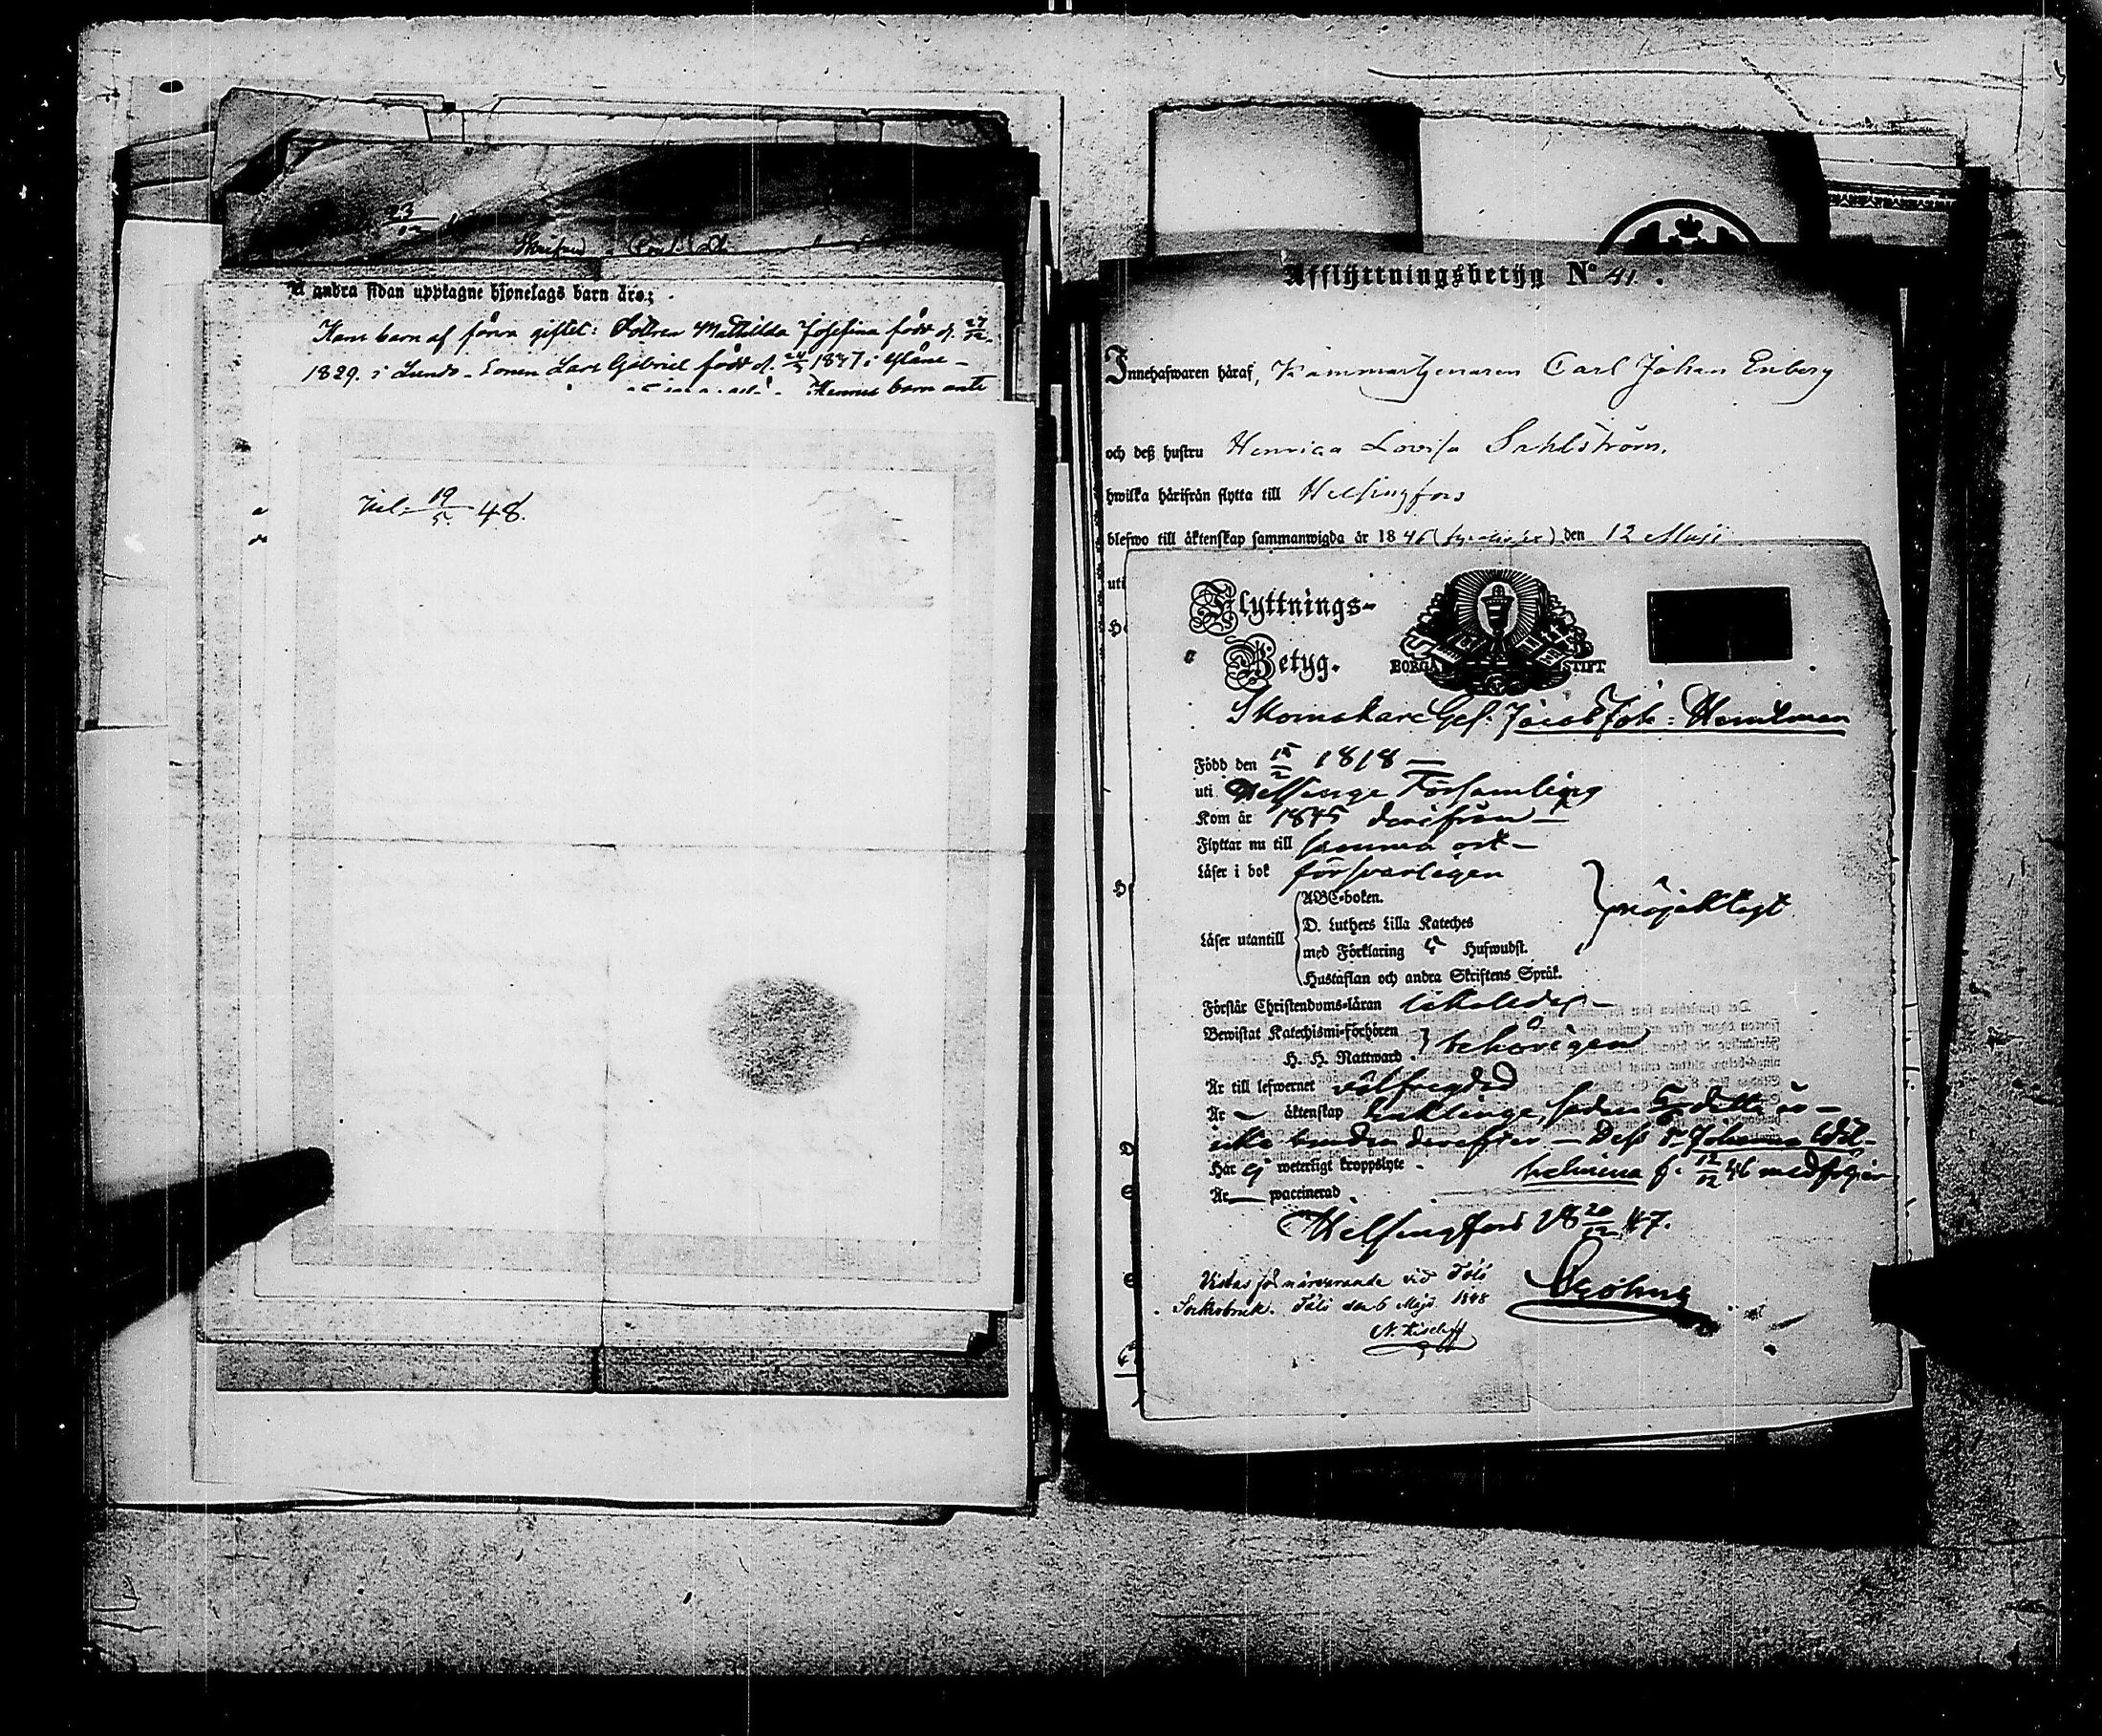 23
12
å andra sidan upptagne hjonelags barn äro:
Hans barn af förra giftet: Dottren Mathilda Josefina född d. 27/12
1829. i Lundo - Sonen Lars Gabriel född d. 24/5 1837 i Yläne -
Hennes barn ante
Inl. 19/5 48.
Afflyttningsbetyg No 41.
Innehafwaren häraf, Kammartjenaren Carl Johan Enberg
och deß hustru Henrica Lovisa Sahlström,
hwilka härifrån flytta till Helsingfors
blefwo till äktenskap sammanwigda år 1846 (fyratiosex) den 12 Maji
uti
Flyttnings-
Betyg.
BORGÅ STIFT
Skomakare Ges. Jacob Joh:
Född den 15/2 1818 —
uti Helsinge Församling
Kom år 1845 derifrån —
Flyttar nu till samma ort —
Läser i bok försvarligen
Läser utantill
ABC-boken.
D. Luthers Lilla Kateches
med Förklaring 5 Hufwudst.
Hustaflan och andra Skriftens Språk.
nöjaktigt
Förstår Christendoms-läran likaledes —
Bewistat Katechismi-förhören
H. H. Nattward.
behörigen
Är till lefwernet välfrejdad
Är — äktenskap Enkling, sedan detta är —
icke bunden derefter — Dess d. Johanna Wil-
Har ej weterligt kroppslyte. helmina f. 12/12 46 medföljer
Är — vaccinerad.
Helsingfors 18 20/12 47.
Vistas för närvarande vid Tölö
Sockerbruk. Tölö den 6 Maji 1848